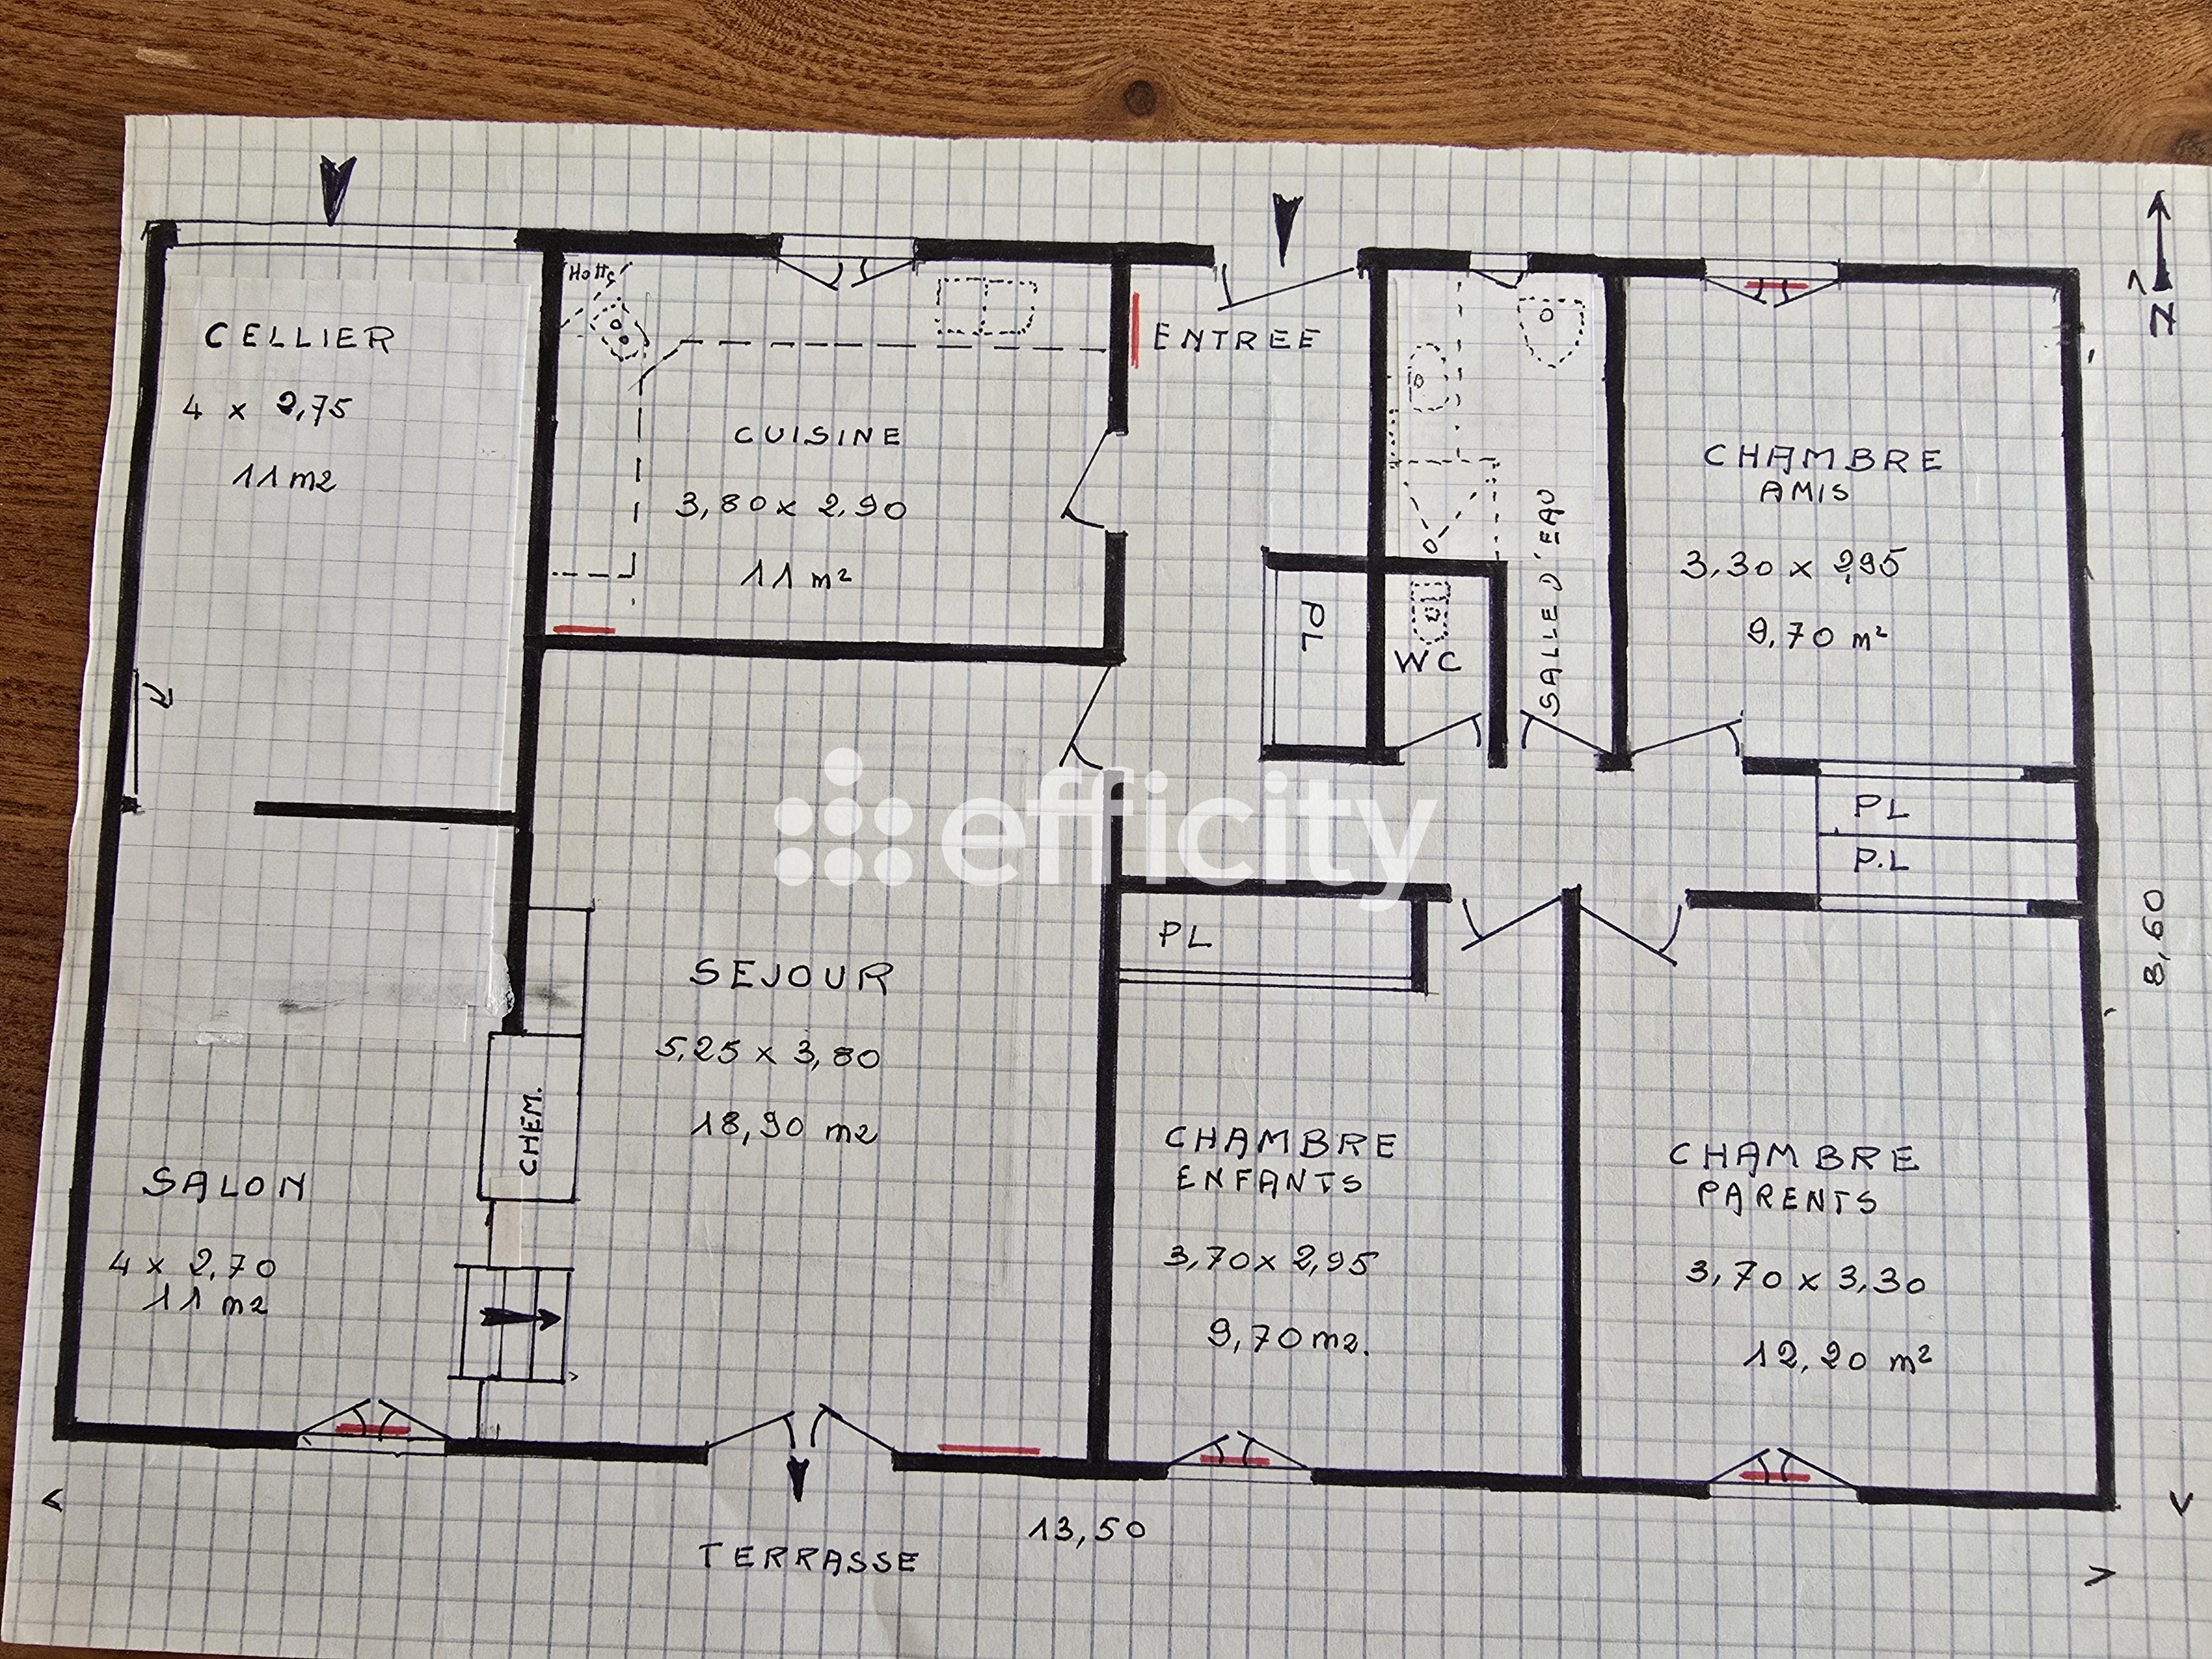 Hotte
CELLIER
4 x 2,75
11 m2
CUISINE
3,80 x 2,90
11 m²
ENTREE
PL
WC
SALLE D'EAU
CHAMBRE
AMIS
3,30 x 2,95
9,70 m²
N
PL
P.L
PL
8,60
efficity
SEJOUR
5,25 x 3,80
18,90 m2
CHEM.
SALON
4 x 2,70
11 m2
CHAMBRE
ENFANTS
3,70 x 2,95
9,70 m2.
CHAMBRE
PARENTS
3,70 x 3,30
12,20 m²
13,50
TERRASSE